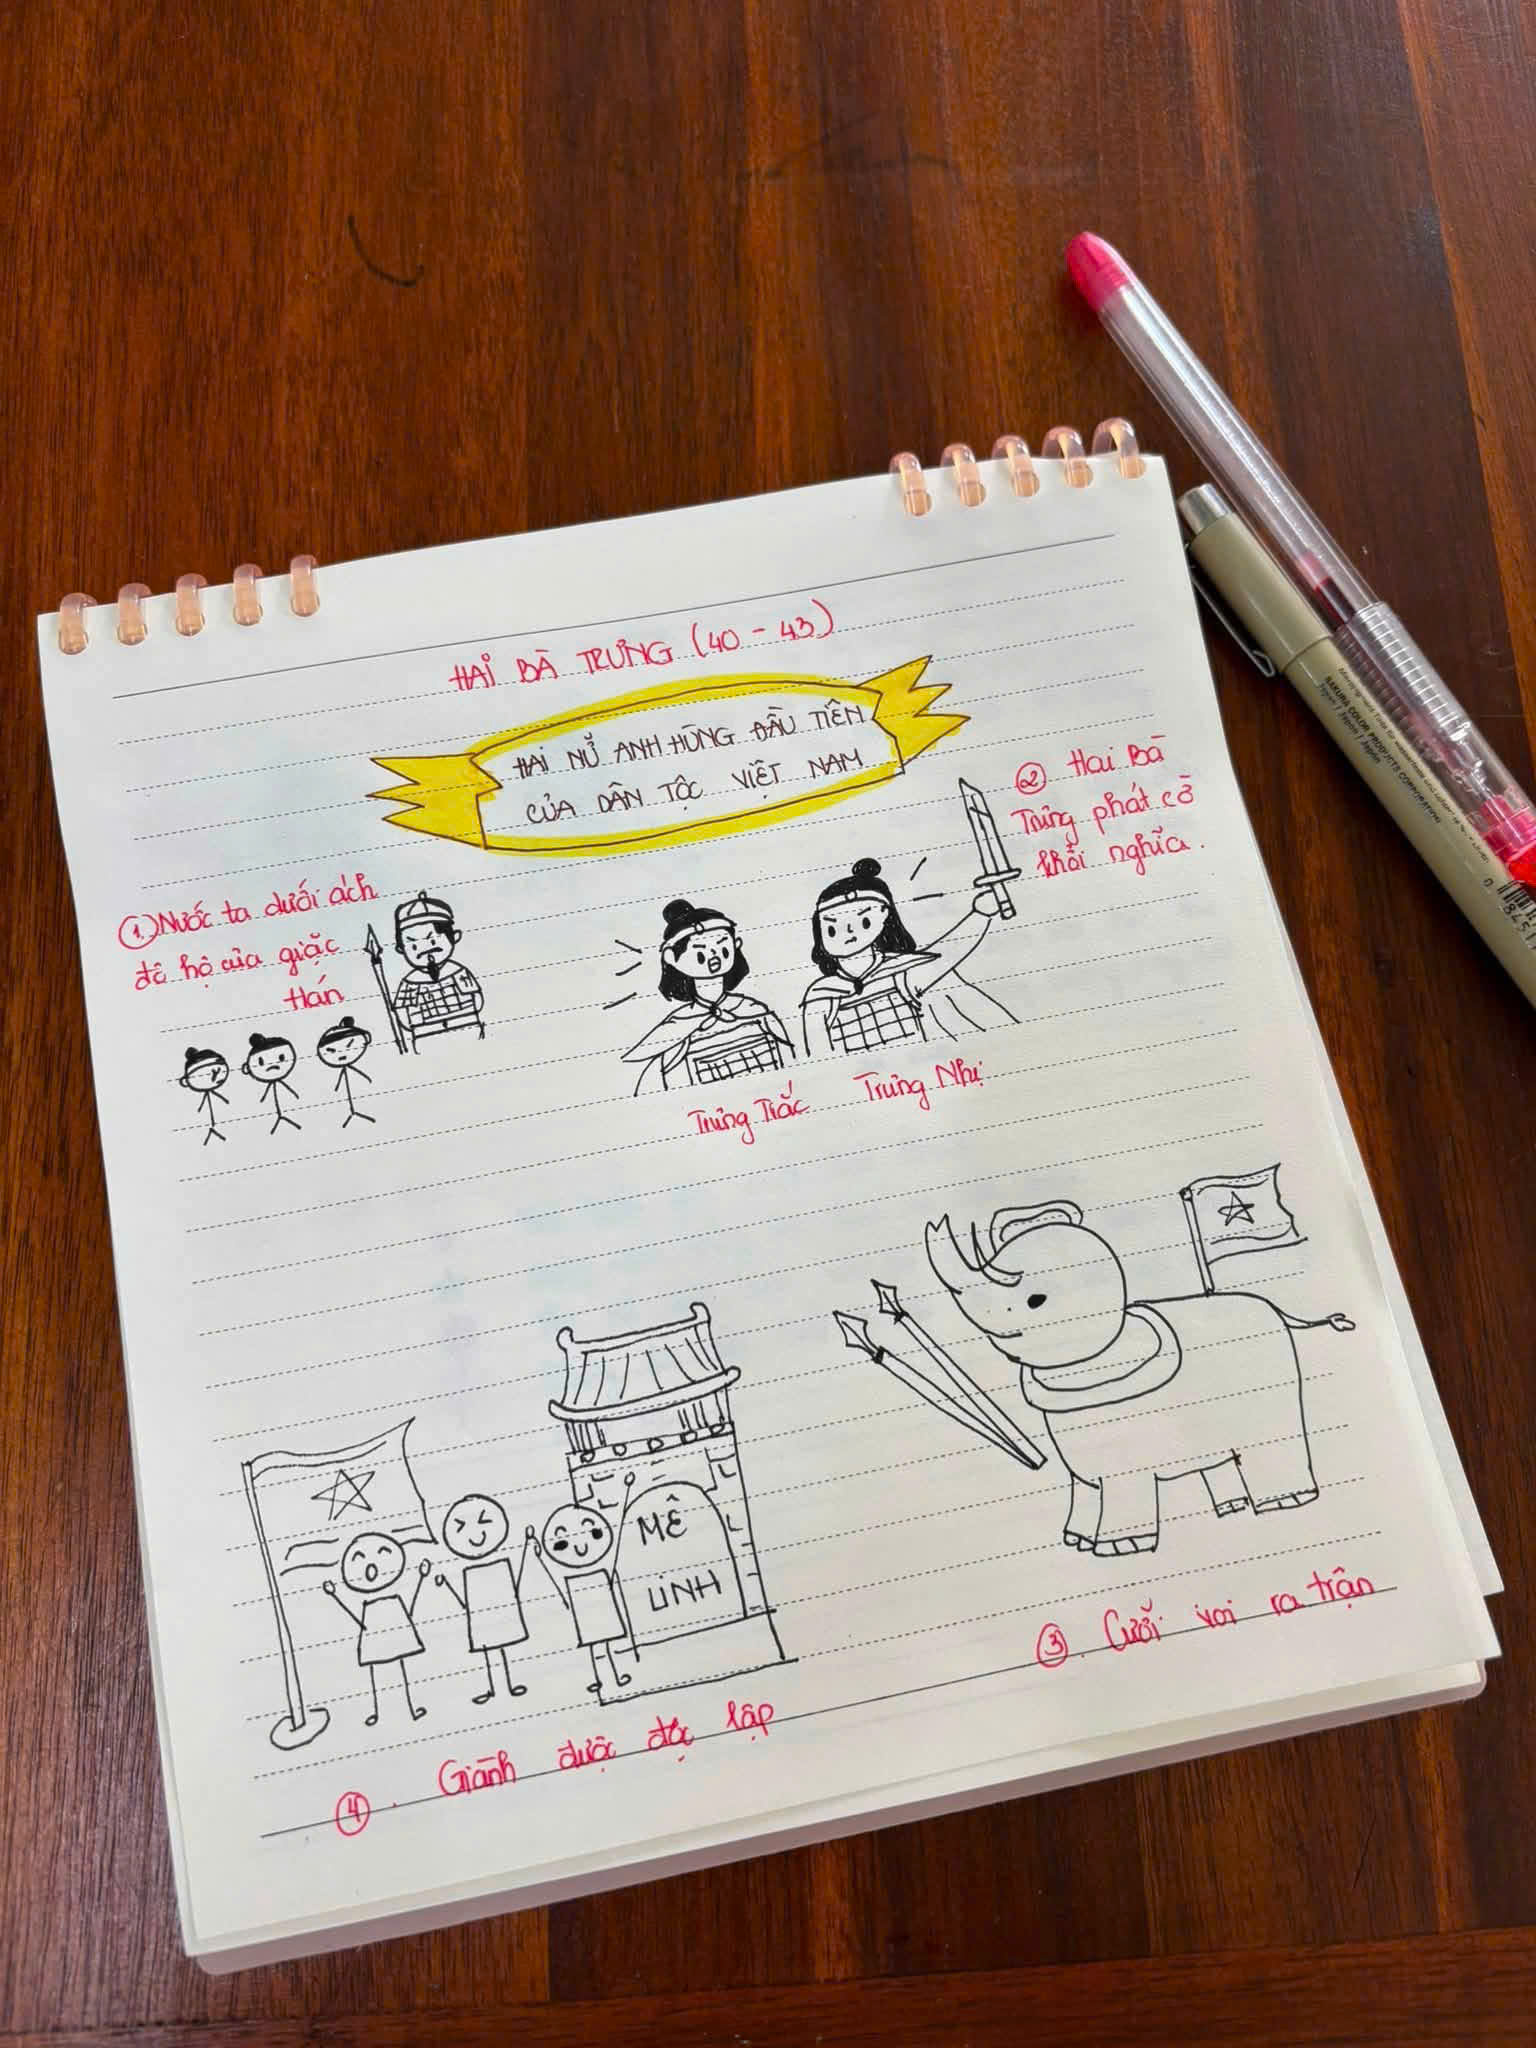 HAI BÀ TRƯNG (40 - 43)
HAI NỮ ANH HÙNG ĐẦU TIÊN
CỦA DÂN TỘC VIỆT NAM
① Nước ta dưới ách
đô hộ của giặc
Hán
② Hai Bà
Trưng phát cờ
khởi nghĩa.
Trưng Trắc
Trưng Nhị
MÊ
LINH
③. Cưỡi voi ra trận
④. Giành được độc lập
SAKURA COLOR PRODUCTS CORPORATION